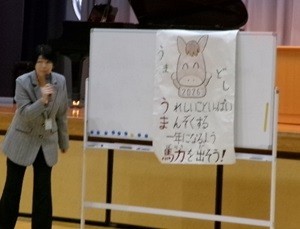 うま どし
2026
うれしいこといっぱい
まんぞくする
一年になるよう
馬力を出そう!